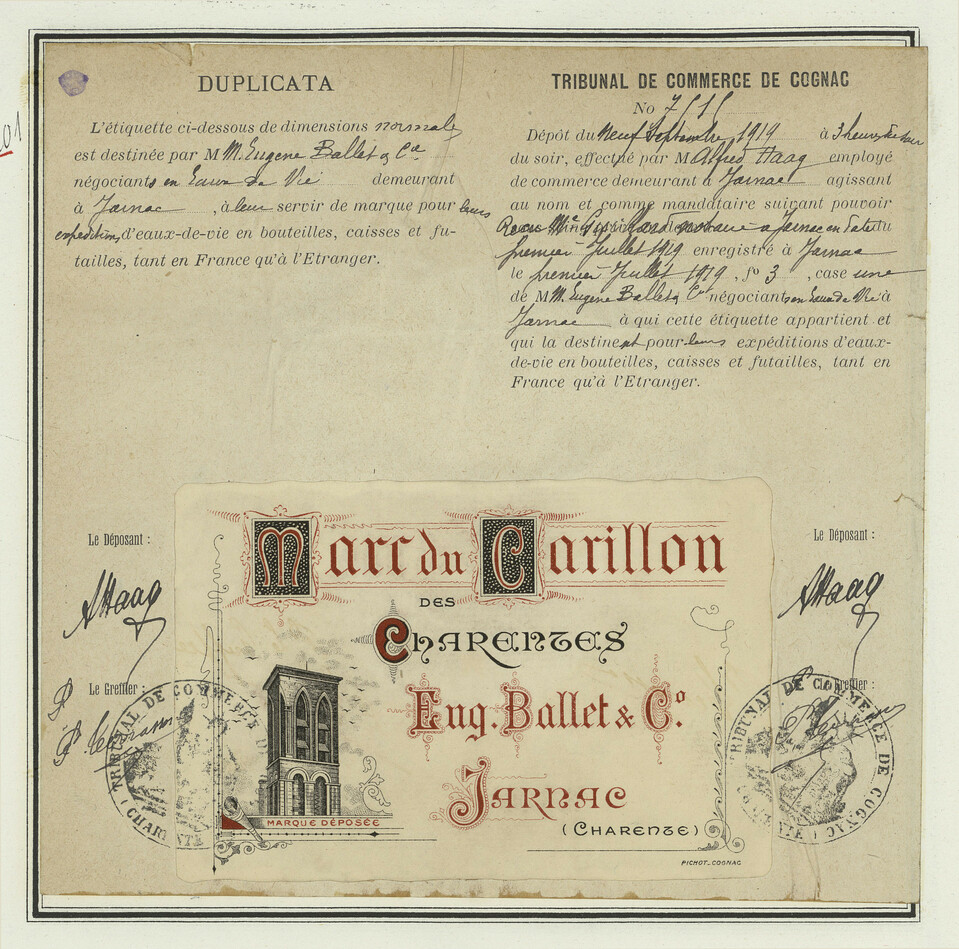 DUPLICATA
L'étiquette ci-dessous de dimensions normales
est destinée par M M. Eugene Ballet & Cie
négociants en Eaux de Vie demeurant
à Jarnac, à leur servir de marque pour leurs
expéditions d'eaux-de-vie en bouteilles, caisses et fu-
tailles, tant en France qu'à l'Etranger.
TRIBUNAL DE COMMERCE DE COGNAC
No
Dépôt du Neuf Septembre 1919 à 3 heures
du soir, effectué par M Alfred Haag employé
de commerce demeurant à Jarnac agissant
au nom et comme mandataire suivant pouvoir
notaire à Jarnac en date du
premier Juillet 1919 enregistré à Jarnac
le premier Juillet 1919, fo 3, case une
de M M. Eugene Ballet & Cie négociants en Eaux de Vie à
Jarnac à qui cette étiquette appartient et
qui la destinent pour leurs expéditions d'eaux-
de-vie en bouteilles, caisses et futailles, tant en
France qu'à l'Etranger.
Le Déposant :
AHaag
Le Greffier :
Le Déposant :
AHaag
Le Greffier :
TRIBUNAL DE COMMERCE DE COGNAC
(CHARENTE)
TRIBUNAL DE COMMERCE DE COGNAC
(CHARENTE)
Marc du Carillon
DES
CHARENTES
Eug. Ballet & Co.
JARNAC
(CHARENTE)
MARQUE DÉPOSÉE
PICHOT_COGNAC
01